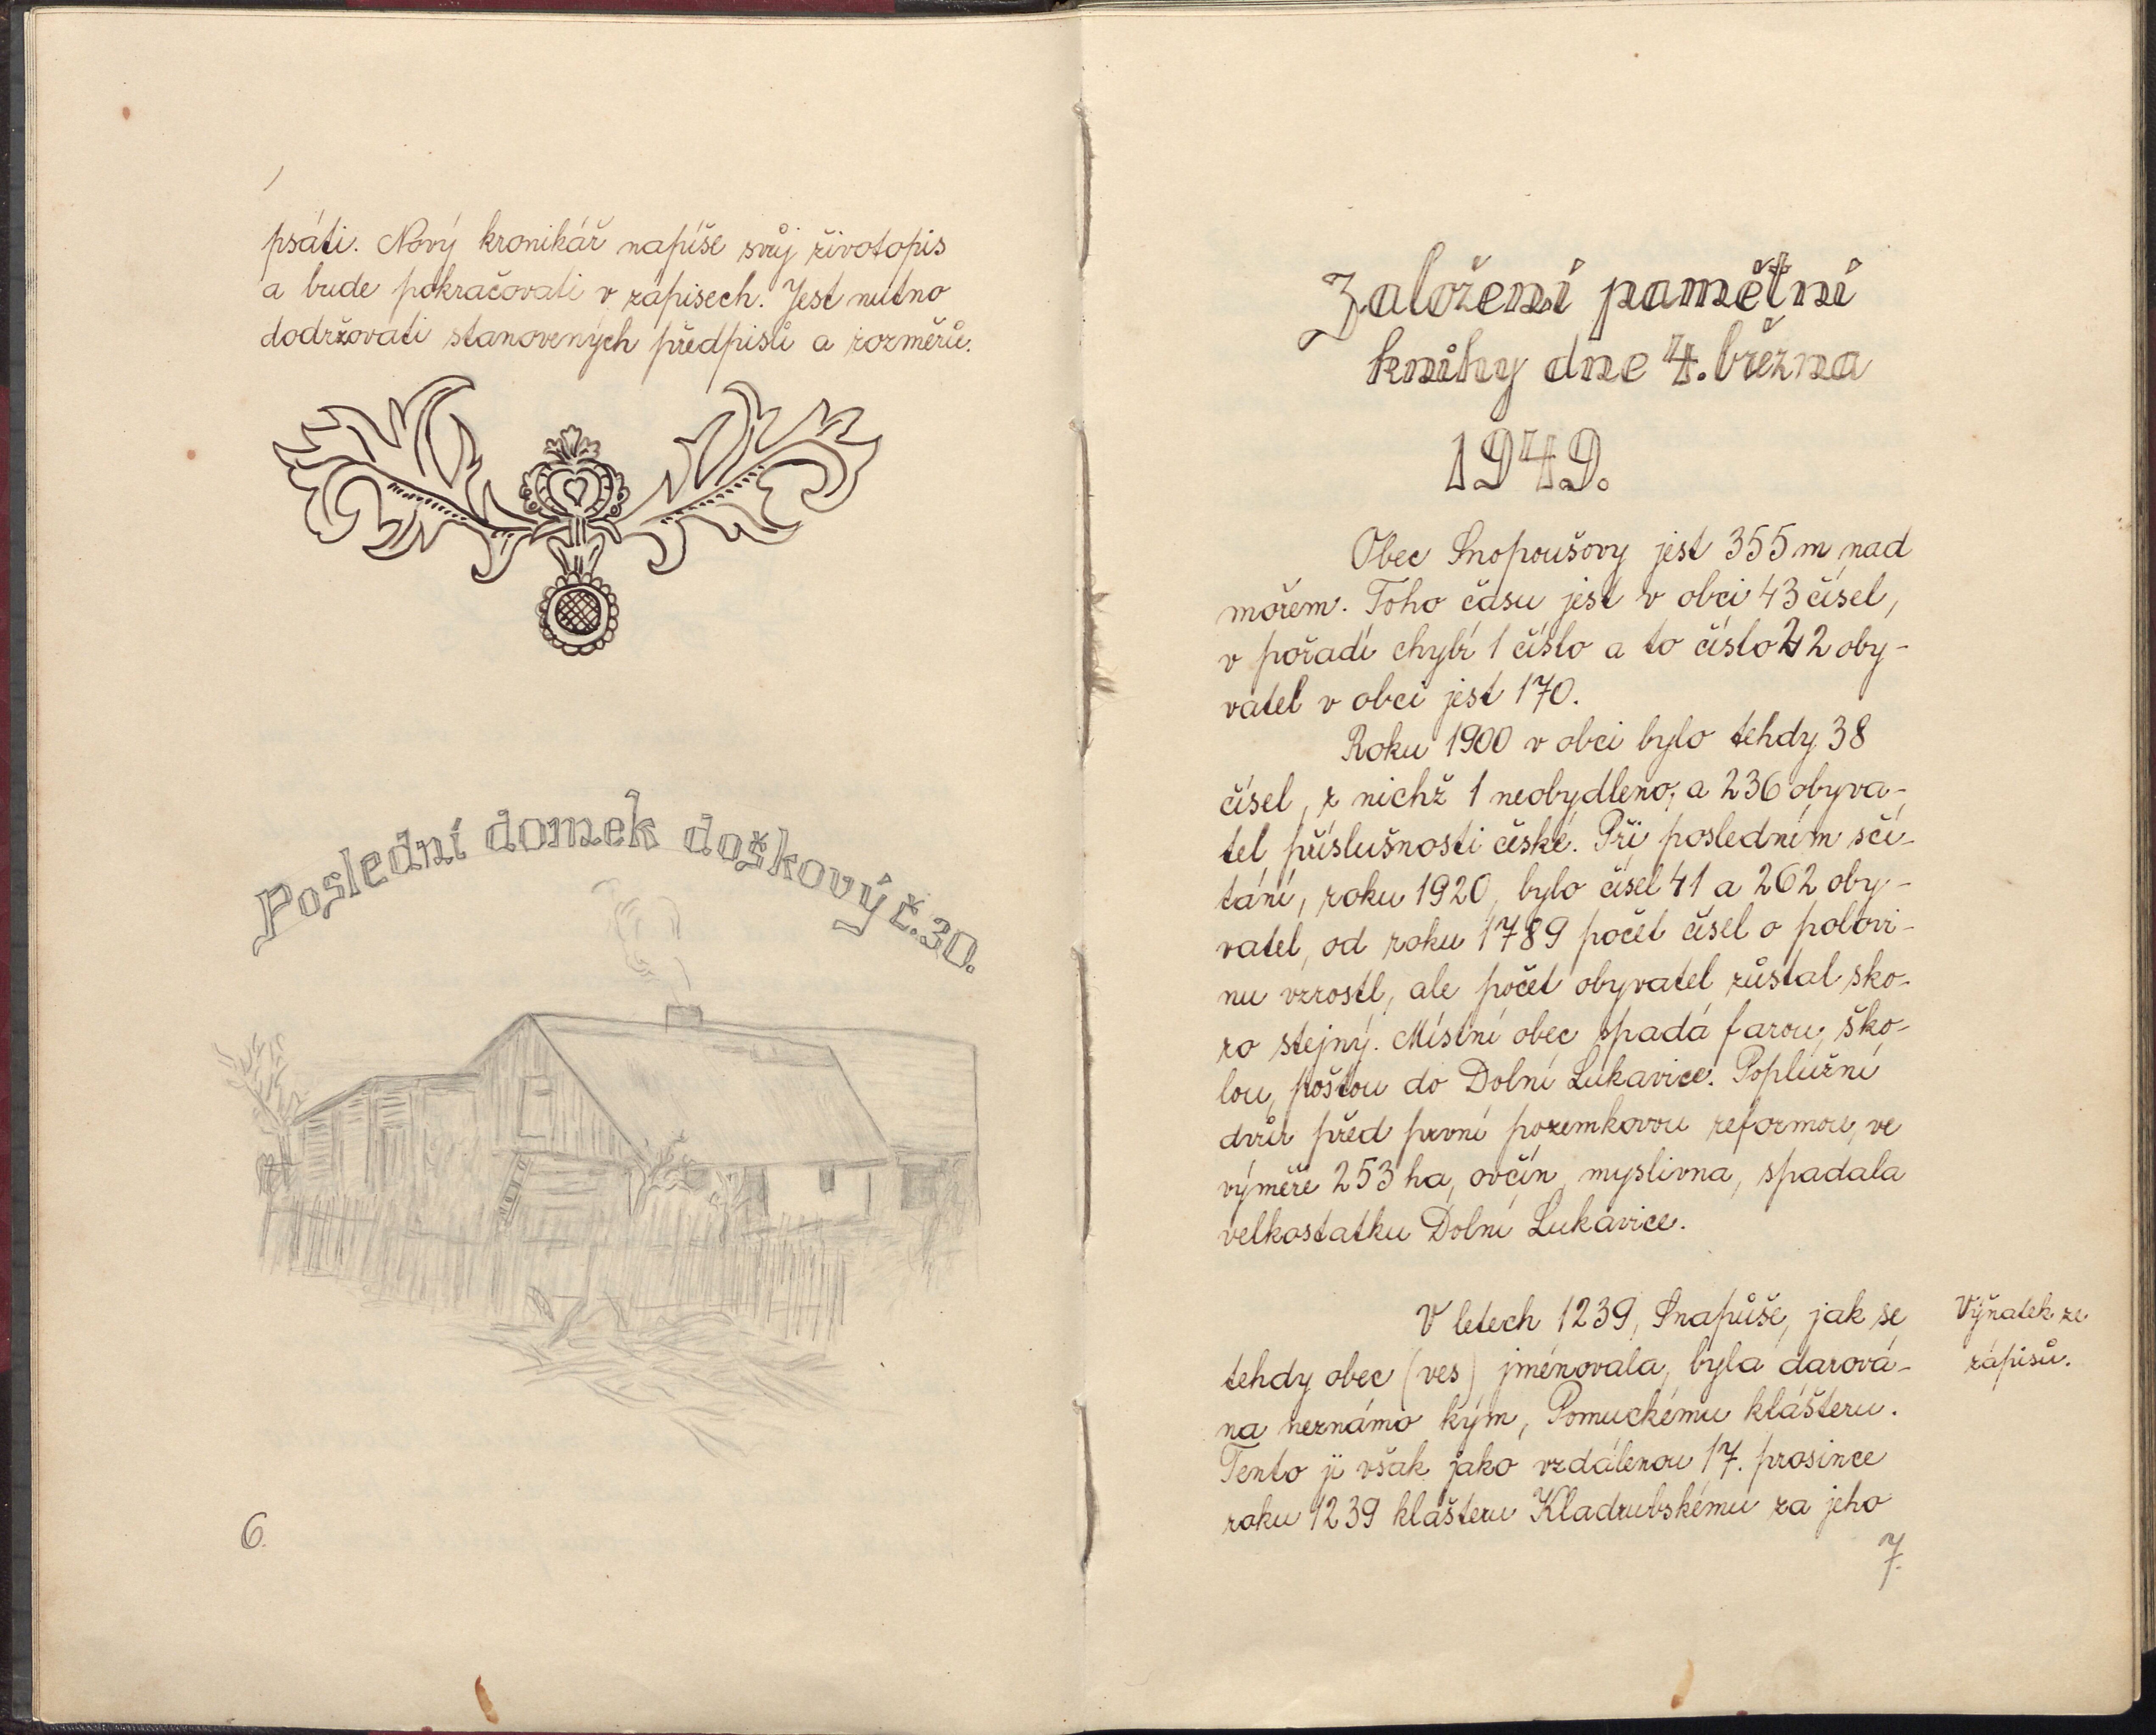 psáti. Nový kronikář napíše svůj životopis
a bude pokračovati v zápisech. Jest nutno
dodržovati stanovených předpisů a rozměrů.
Poslední domek doškový č.30.
6.
Založení pamětní
knihy dne 4. března
1949.
Obec Snopoušovy jest 355 m nad
mořem. Toho času jest v obci 43 čísel,
v pořadí chybí 1 číslo a to číslo 42 oby-
vatel v obci jest 170.
Roku 1900 v obci bylo tehdy 38
čísel, z nichž 1 neobydleno, a 236 obyva-
tel příslušnosti české. Při posledním sčí-
tání, roku 1920, bylo čísel 41 a 262 oby-
vatel, od roku 1789 počet čísel o polovi-
nu vzrostl, ale počet obyvatel zůstal sko-
ro stejný. Místní obec spadá farou, ško-
lou, poštou do Dolní Lukavice. Poplužní
dvůr před první pozemkovou reformou, ve
výměře 253 ha, ovčín, myslivna, spadala
velkostatku Dolní Lukavice.
V letech 1239, Snapůše, jak se
tehdy obec (ves) jménovala, byla darová-
na neznámo kým, Pomuckému klášteru.
Tento ji však jako vzdálenou 17. prosince
roku 1239 klášteru Kladrubskému za jeho
Výňatek ze
zápisů.
7.